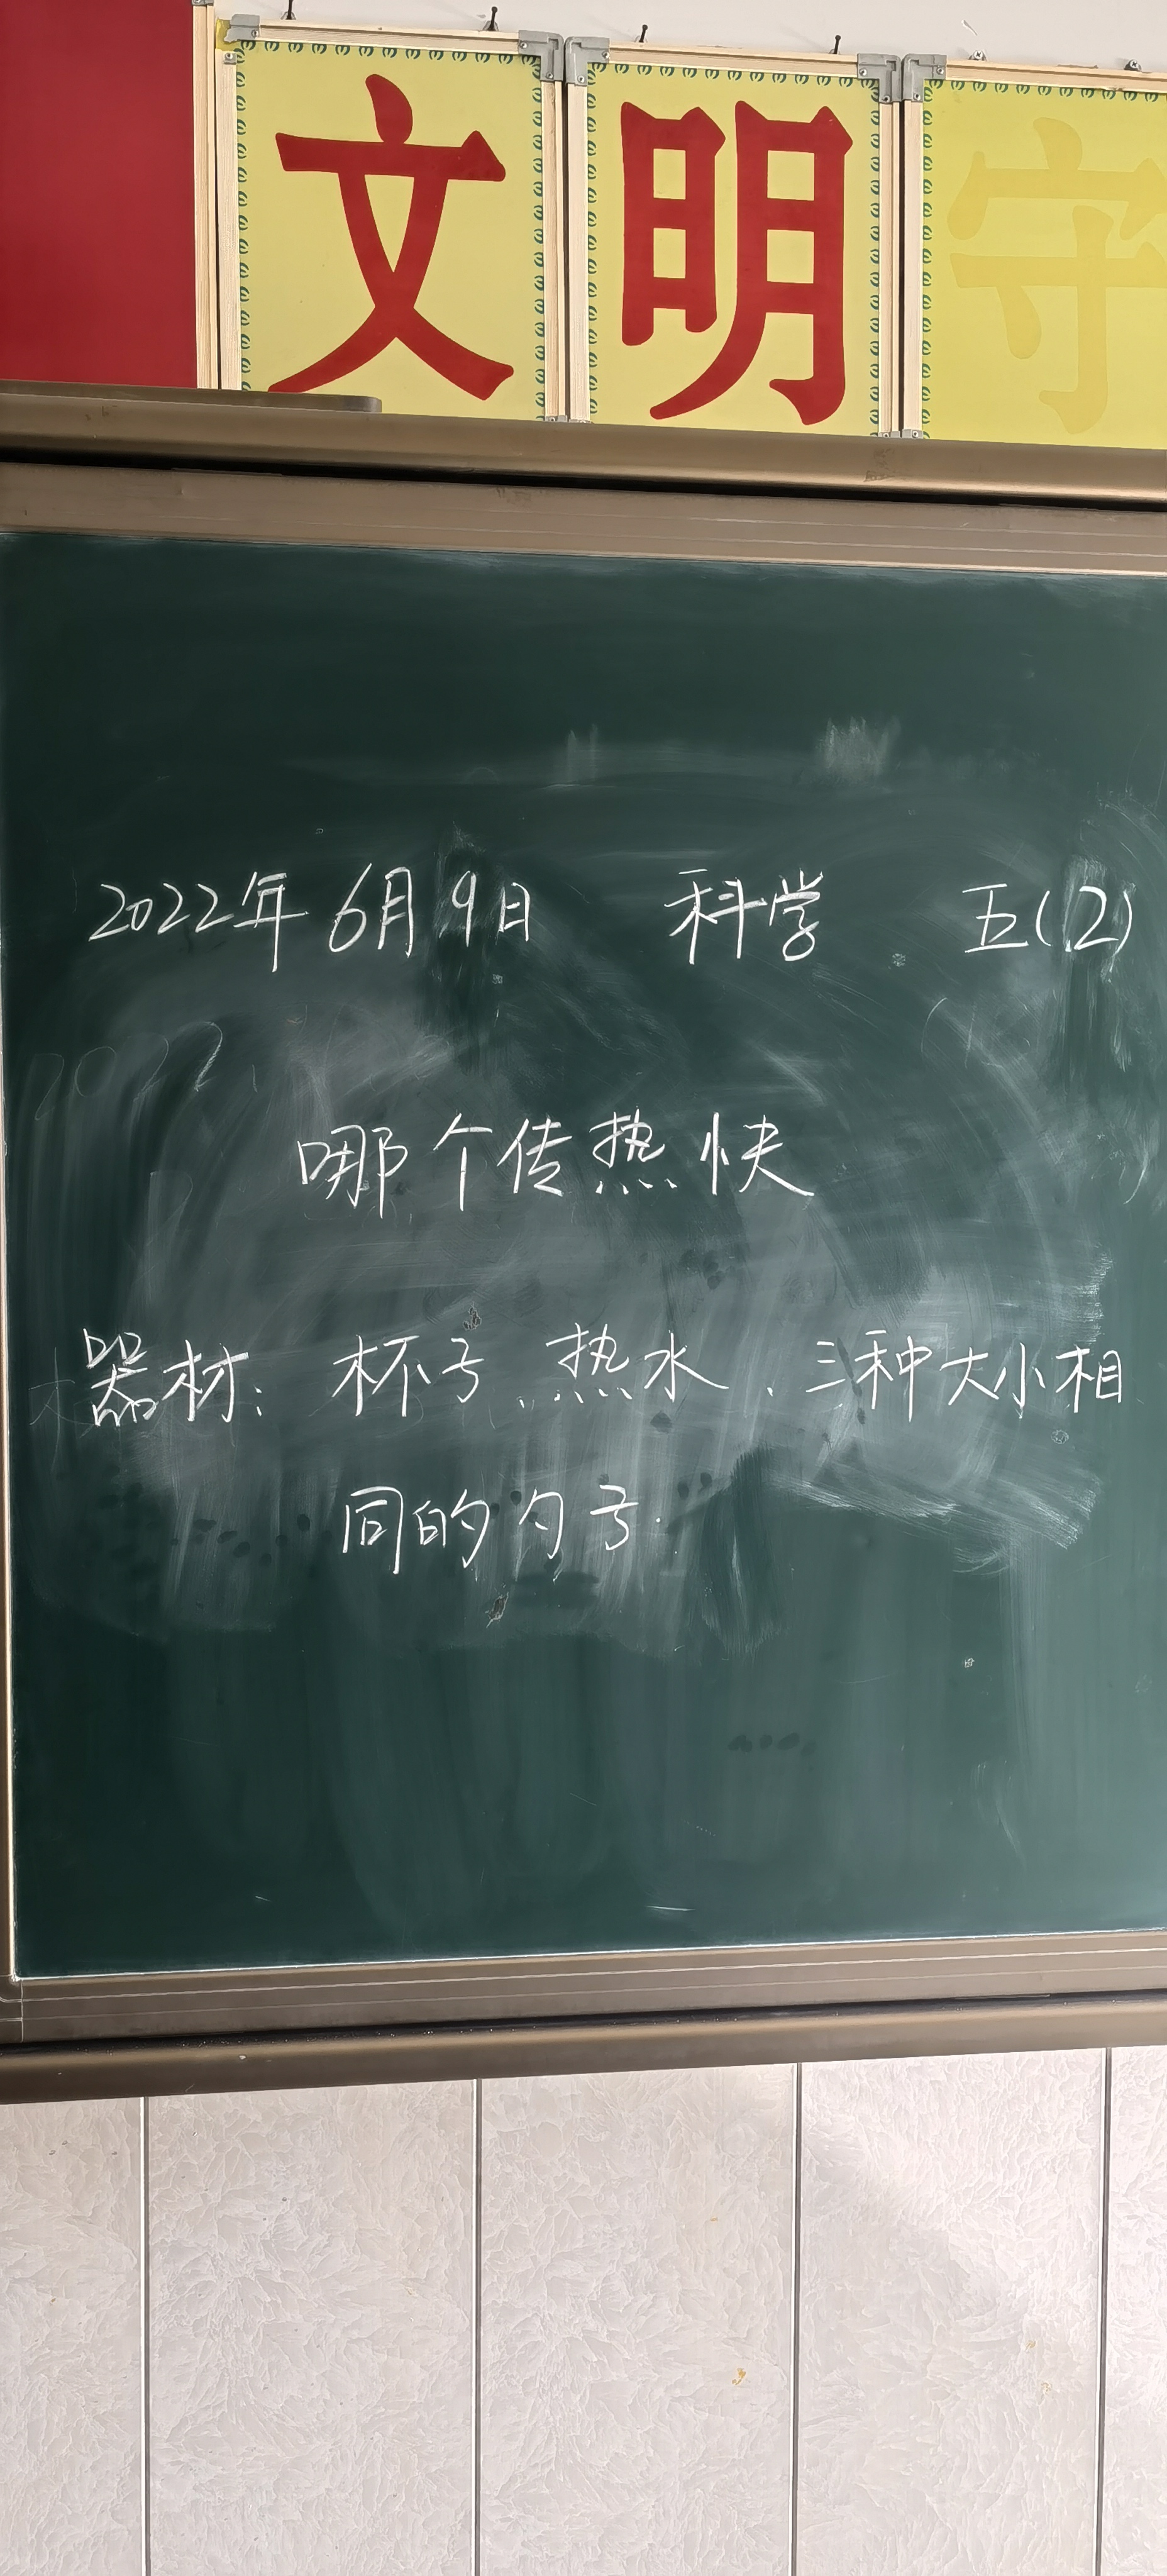 文明守
2022年6月9日 科学 五(2)
2022
哪个传热快
器材: 杯子、热水、三种大小相
同的勺子.